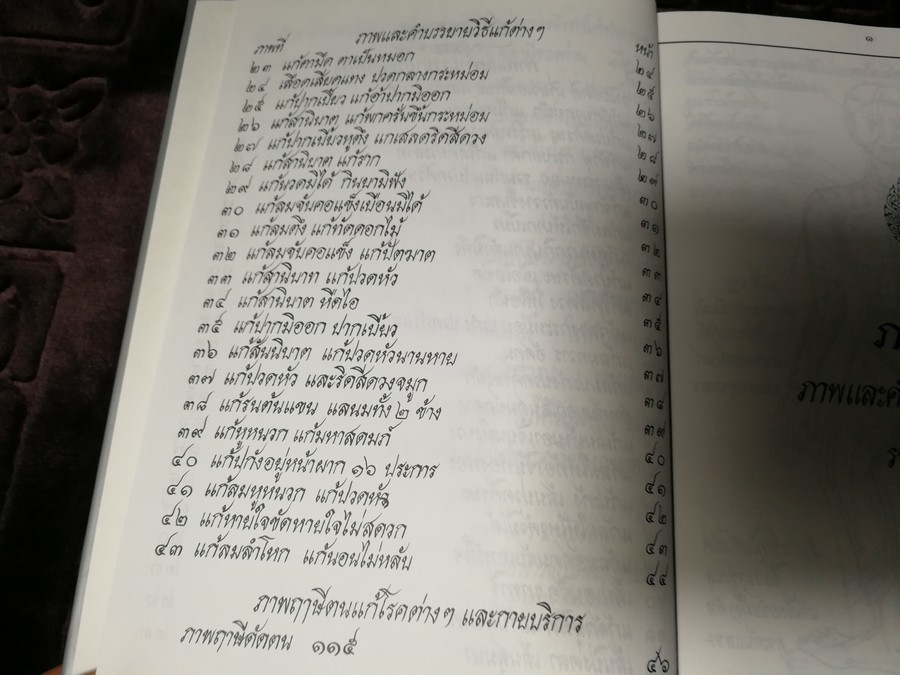 ภาพและคำบรรยายวิธีแก้ต่างๆ
ภาพที่ หน้า
๒๓ แก้ตามืด ตาเป็นหมอก ๒๔
๒๔ เลือดเสียดแทง ปวดกลางกระหม่อม ๒๕
๒๕ แก้ปากเบี้ยว แก้อ้าปากมิออก ๒๖
๒๖ แก้สานิบาต แก้พกครั่นขึ้นกระหม่อม ๒๗
๒๗ แก้ปากเบี้ยวหูตึง แก้เสลดริดสีดวง ๒๘
๒๘ แก้สานิบาต แก้ราก ๒๙
๒๙ แก้ขวดมิได้ กินยามิฟัง ๓๐
๓๐ แก้ลมจับคอแข็งเบือนมิได้ ๓๑
๓๑ แก้ลมตึง แก้ทัดดอกไม้ ๓๒
๓๒ แก้ลมจับคอแข็ง แก้ปัตฆาต ๓๓
๓๓ แก้สานิบาท แก้ปวดหัว ๓๔
๓๔ แก้สานิบาต หืดไอ ๓๕
๓๕ แก้ปากมิออก ปากเบี้ยว ๓๖
๓๖ แก้สันนิบาต แก้ปวดหัวนานหาย ๓๗
๓๗ แก้ปวดหัว และริดสีดวงจมูก ๓๘
๓๘ แก้รนต้นแขน แลนมทั้ง ๒ ข้าง ๓๙
๓๙ แก้หูหนวก แก้มหาสดมภ์ ๔๐
๔๐ แก้ปุกังอยู่หน้าผาก ๑๖ ประการ ๔๑
๔๑ แก้ลมหูหนวก แก้ปวดหัว ๔๒
๔๒ แก้หายใจขัดหายใจไม่สดวก ๔๓
๔๓ แก้ลมลำโหก แก้นอนไม่หลับ ๔๔
ภาพฤๅษีตนแก้โรคต่างๆ และกายบริการ
ภาพฤๅษีดัดตน ๑๑๕ ๔๖
๑